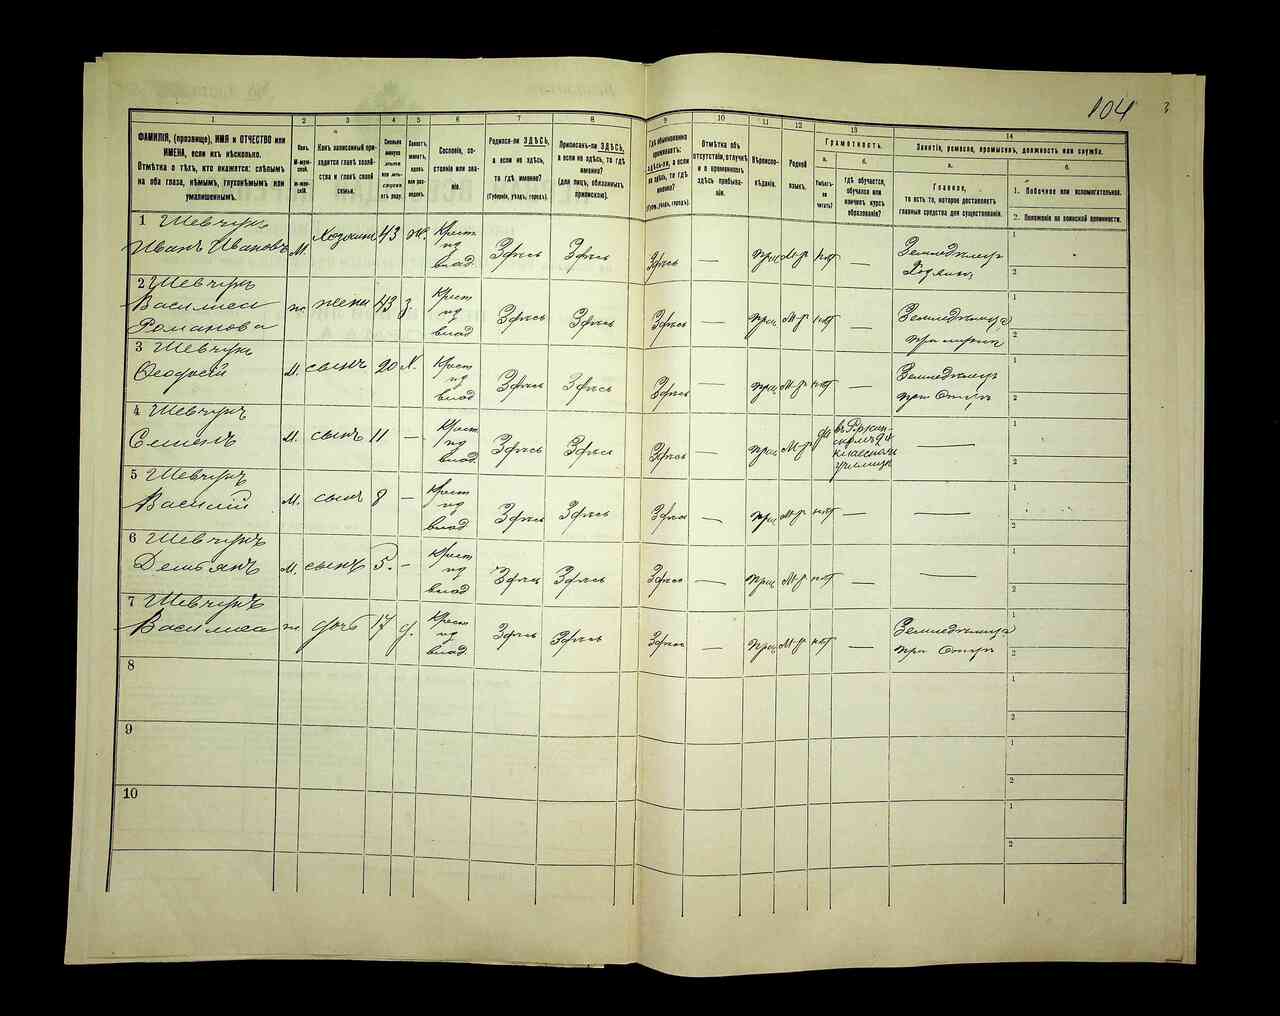 104
1 2 3 4 5 6 7 8 9 10 11 12 13 14
ФАМИЛІЯ, (прозвище), ИМЯ и ОТЧЕСТВО или
ИМЕНА, если ихъ нѣсколько.
Отмѣтка о тѣхъ, кто окажется: слѣпымъ
на оба глаза, нѣмымъ, глухонѣмымъ или
умалишеннымъ.
Полъ.
М-муж-
ской.
Ж-жен-
скій.
Какъ записанный при-
ходится главѣ хозяй-
ства и главѣ своей
семьи.
Сколько
минуло
лѣтъ
или мѣ-
сяцевъ
отъ роду.
Холостъ,
женатъ,
вдовъ
или раз-
веденъ.
Сословіе, со-
стояніе или зва-
ніе.
Родился-ли ЗДѢСЬ,
а если не здѣсь,
то гдѣ именно?
(Губернія, уѣздъ, городъ).
Приписанъ-ли ЗДѢСЬ,
а если не здѣсь, то гдѣ
именно?
(для лицъ, обязанныхъ
припискою).
Гдѣ обыкновенно
проживаетъ:
здѣсь-ли, а если
не здѣсь, то гдѣ
именно?
(Губ., уѣздъ, городъ).
Отмѣтка объ
отсутствіи, отлучкѣ
и о временномъ
здѣсь пребыва-
ніи.
Вѣроиспо-
вѣданіе.
Родной
языкъ.
Грамотность.
а. б.
Умѣетъ-
ли
читать?
гдѣ обучается,
обучался или
кончилъ курсъ
образованія?
Занятіе, ремесло, промыселъ, должность или служба.
а. б.
Главное,
то есть то, которое доставляетъ
главныя средства для существованія.
1. Побочное или вспомогательное.
2. Положеніе по воинской повинности.
1 Шевчукъ
Иванъ Ивановъ М. Хозяинъ 43 ж. Крест
из
влад. Здѣсь Здѣсь Здѣсь — м-р нѣт — Земледѣлецъ
Хозяинъ
1
2
2 Шевчукъ
Василиса
Романова ж. жена 43 з. Крест
из
влад Здѣсь Здѣсь Здѣсь — м-р нѣт — Земледѣлица
при мужѣ
1
2
3 Шевчукъ
Ѳеодосій М. сынъ 20 х. Крест
из
влад. Здѣсь Здѣсь Здѣсь — м-р нѣт — Земледѣлецъ
при Отцѣ
1
2
4 Шевчукъ
Семенъ М. сынъ 11 — Крест
из
влад. Здѣсь Здѣсь Здѣсь — м-р да
классномъ
училищѣ —
1
2
5 Шевчукъ
Василій М. сынъ 8 — Крест
из
влад Здѣсь Здѣсь Здѣсь — м-р нѣт — —
1
2
6 Шевчукъ
Демьянъ М. сынъ 5. — Крест
из
влад Здѣсь Здѣсь Здѣсь — м-р нѣт — —
1
2
7 Шевчукъ
Василиса ж. дочь 17 д. Крест
из
влад. Здѣсь Здѣсь Здѣсь — м-р нѣт — Земледѣлица
при Отцѣ
1
2
8
1
2
9
1
2
10
1
2